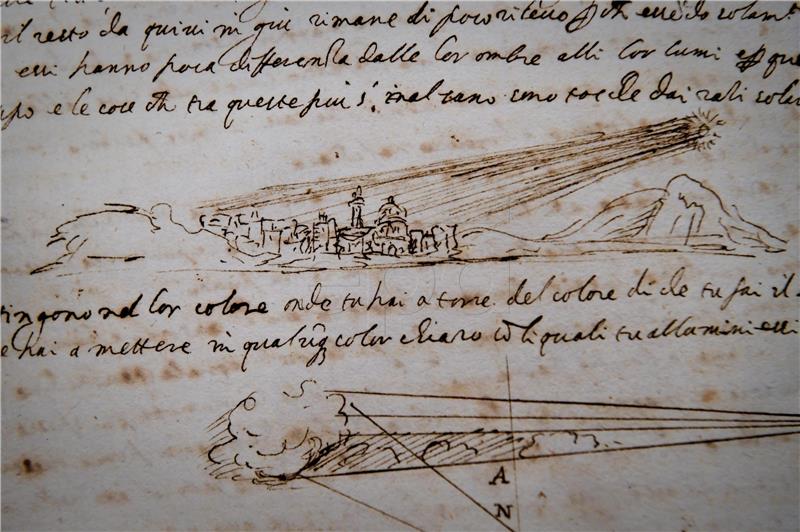 il resto da quivi in giù rimane di poco rilevo ꝑ ch essēdo solamᵗᵉ
essi hanno poca differentia dalle lor ombre alli lor lumi que
e le cose ch tra queste piu s' inalzano sono tocche dai razi solar
tingono nel lor colore onde tu hai a torre del colore di che tu fai il
e hai a mettere in qualūq color chiaro cō li quali tu allumini essi
A
N